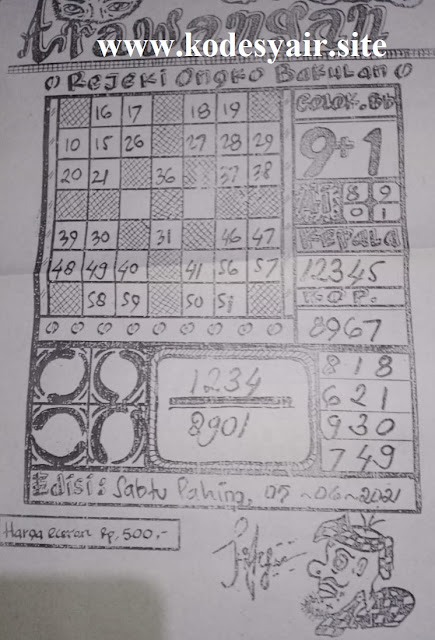 Arawangan
www.kodesyair.site
Rejeki Ongko Bakulan
16 17 18 19
COLOK. BB
10 15 26 27 28 29
9+1
20 21 36 37 38
8 9
0 1
39 30 31 46 47
KEPALA
48 49 40 41 56 57
12345
58 59 50 51
KOP.
8967
1234
8901
818
621
930
749
Edisi: Sabtu Pahing, 05-06-2021
Harga Eceran Rp, 500,-